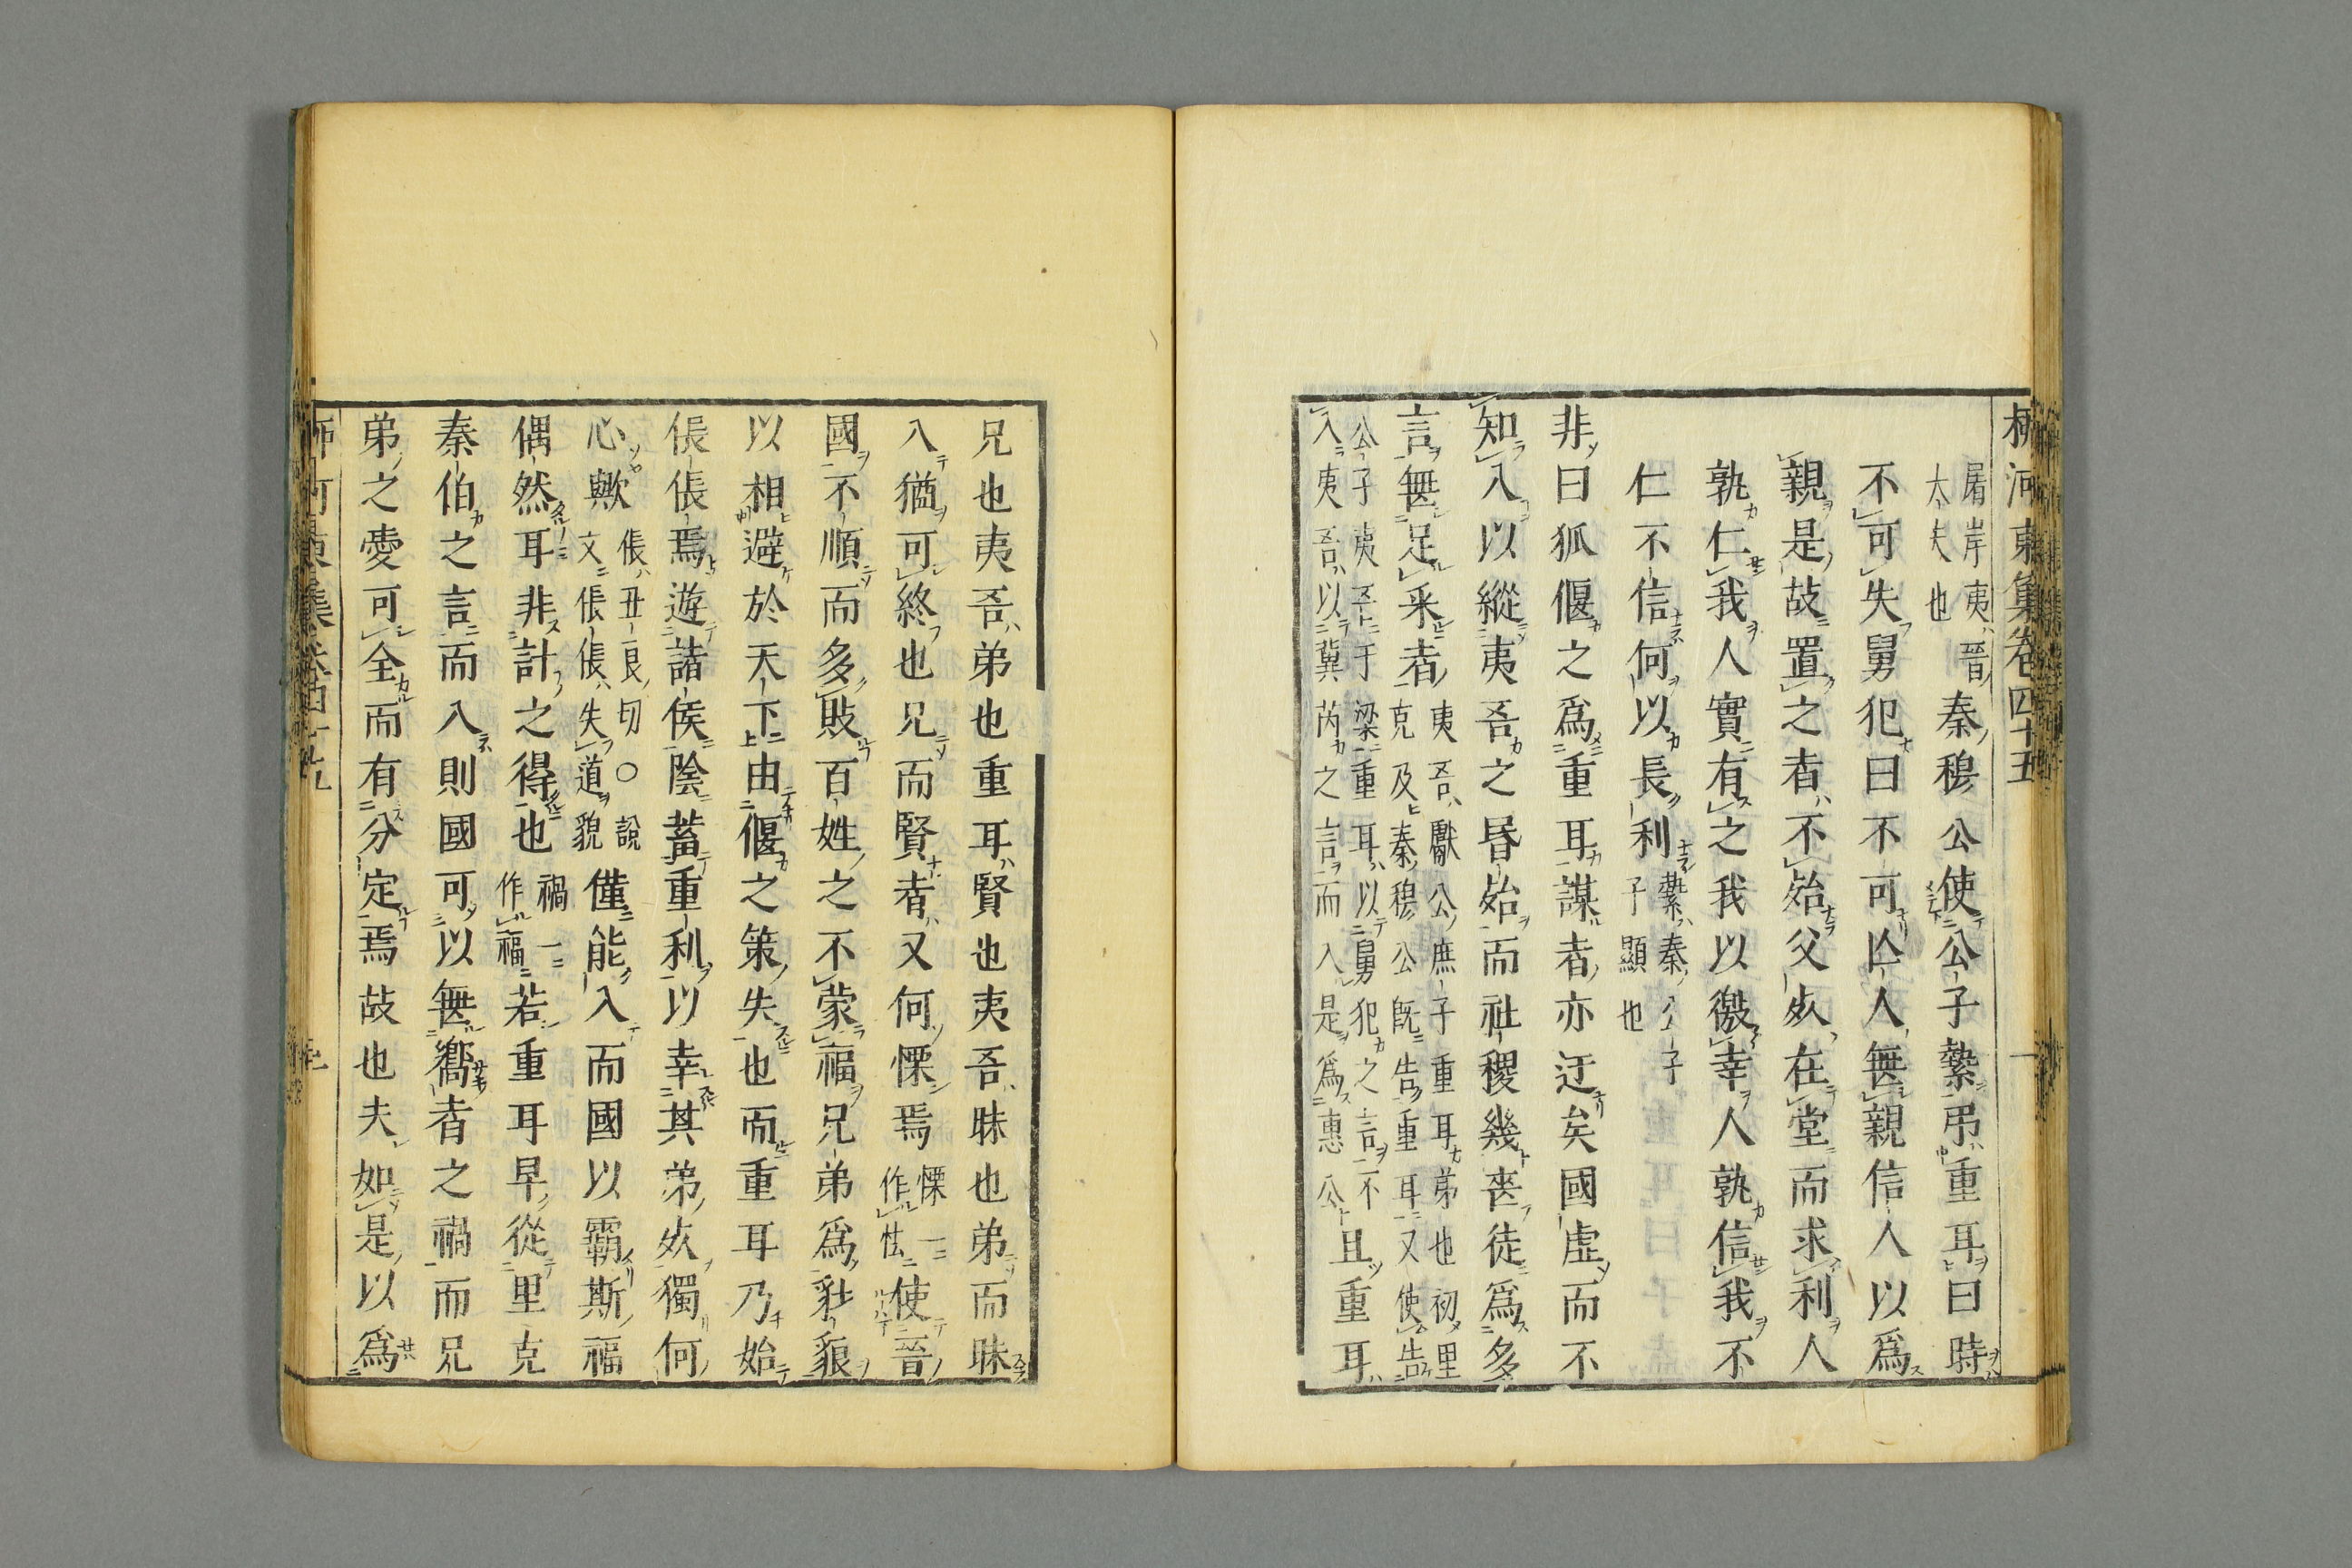 柳河東集卷四十五
屠岸夷晉
大夫也
秦穆公使公子縶弔重耳曰時
不可失舅犯曰不可亾人無親信人以爲
親是故置之者不殆父死在堂而求利人
孰仁我人實有之我以徼幸人孰信我不
仁不信何以長利
縶秦公子
子顯也
非曰狐偃之爲重耳謀者亦迂矣國虛而不
知入以縱夷吾之昬殆而社稷幾喪徒爲多
言無足采者
夷吾獻公庶子重耳弟也初里
克及秦穆公旣告重耳又使告
公子夷吾于梁重耳以舅犯之言不
入夷吾以冀芮之言而入是爲惠公
且重耳
兄也夷吾弟也重耳賢也夷吾昧也弟而昧
入猶可終也兄而賢者又何慄焉
慄一
作怯
使晉
國不順而多敗百姓之不蒙福兄弟爲豺狼
以相避於天下由偃之策失也而重耳乃始
倀倀焉遊諸侯陰蓄重利以幸其弟死獨何
心歟
倀丑良切○說
文倀倀失道貌
僅能入而國以霸斯福
偶然耳非計之得也
禍一
作福
若重耳早從里克
秦伯之言而入則國可以無嚮者之禍而兄
弟之愛可全而有分定焉故也夫如是以爲